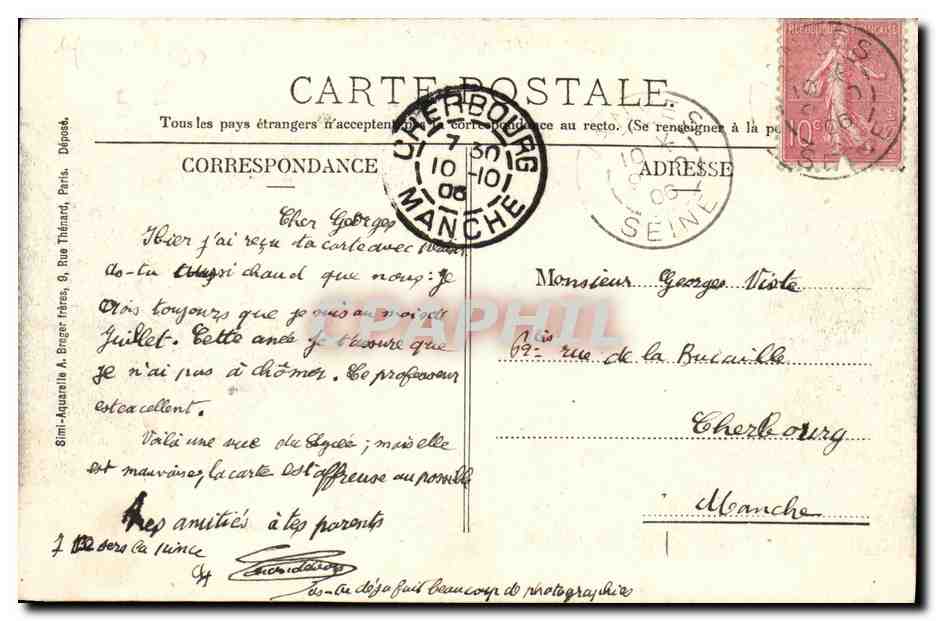 CARTE POSTALE
Tous les pays étrangers n'acceptent pas la correspondance au recto. (Se renseigner à la
CORRESPONDANCE
ADRESSE
Simi-Aquarelle A. Breger frères, 9, Rue Thénard, Paris. Déposé.
REPUBLIQUE FRANCAISE
10c
CHERBOURG
7 30
10 -10
06
MANCHE
10
06
SEINE
CPAPHIL
Cher Georges
Hier j'ai reçu ta carte avec
as-tu aussi chaud que nous: je
crois toujours que je suis au mois de
Juillet. Cette année je t'assure que
je n'ai pas à chômer. Le professeur
est excellent.
Voilà une vue du Lycée; mais elle
est mauvaise, la carte est affreuse au possible
Mes amitiés à tes parents
as-tu déjà fait beaucoup de photographies
Monsieur Georges Viste
69 bis rue de la Bucaille
Cherbourg
Manche